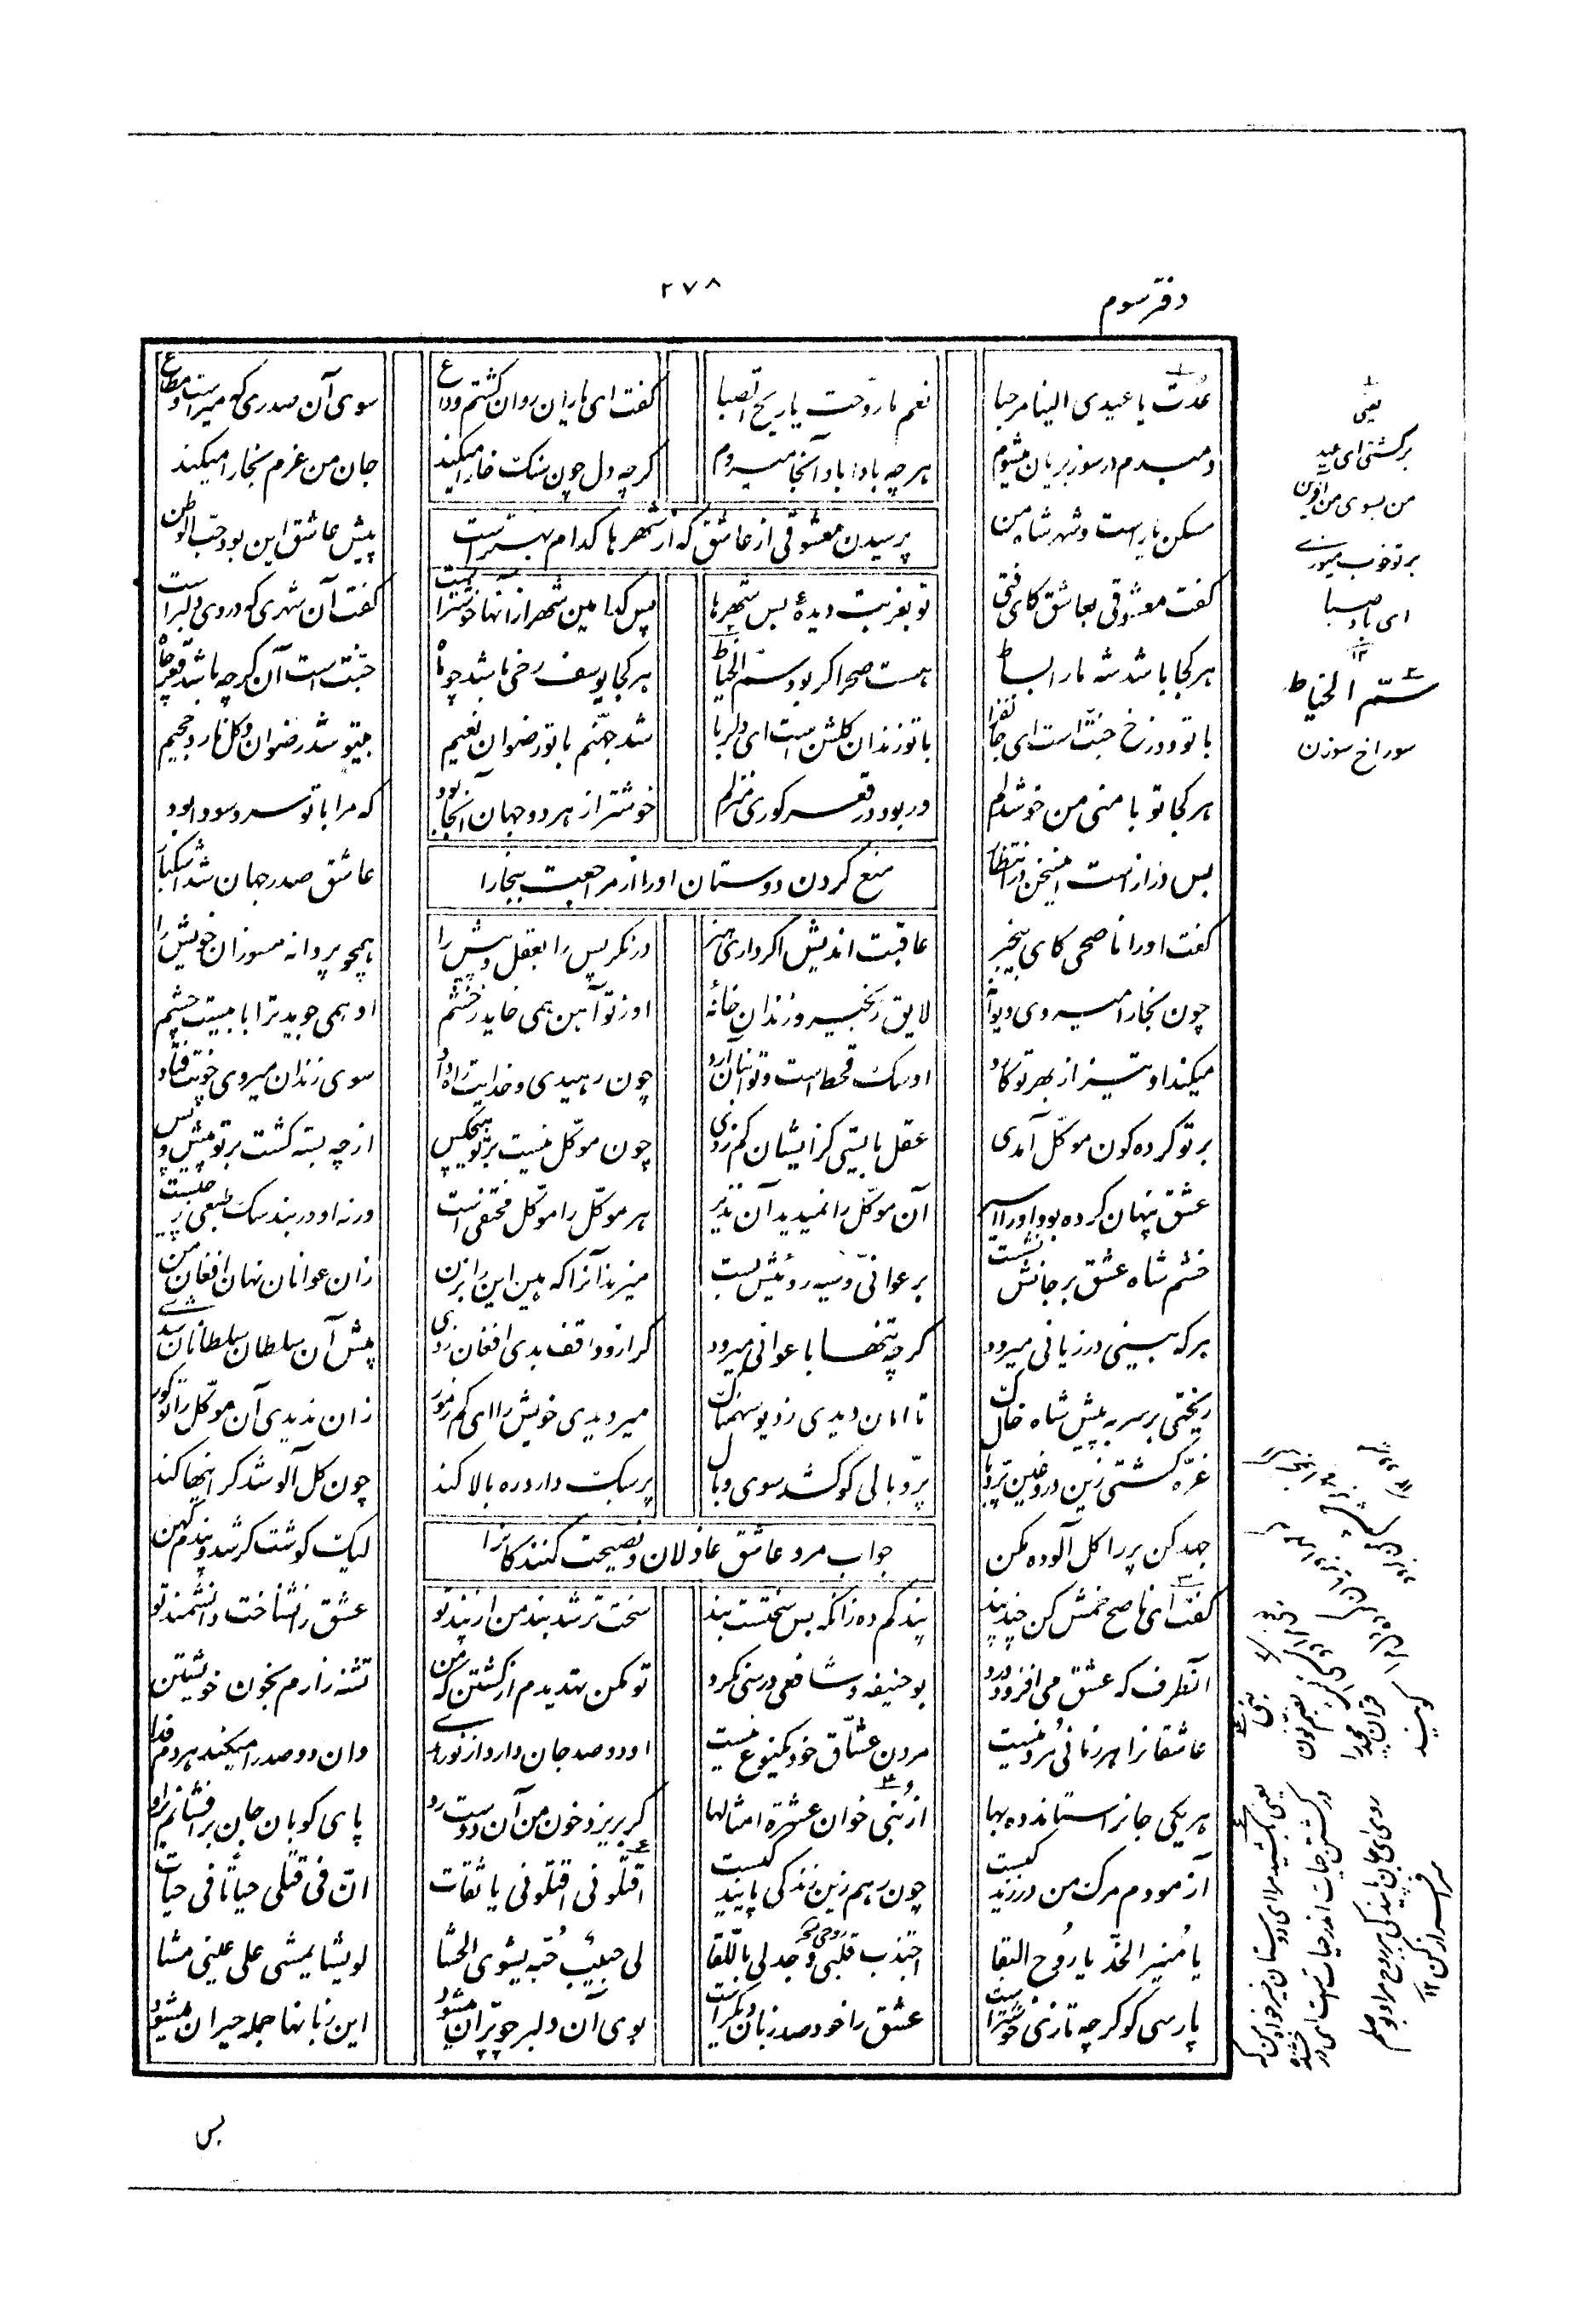 دفتر سوم
۲۷۸
عُدْتَ یا عیدی الینا مرحبا نعم ما روّحت یا ریح الصّبا کفت ای یاران روان کشتم وداع سوی آن صدری که میر است و مطاع
دمبدم در سوز بریان میشوم هر چه بادا باد آنجا میروم کرچه دل چون سنک خارا میکند جان من عزم بخارا میکند
مسکن یار است و شهر شاه من پیش عاشق این بود حبّ الوطن
پرسیدن معشوقی از عاشق که از شهرها کدام بهتر است
کفت معشوقی بعاشق کای فتی تو بغربت دیدهٔ بس شهرها پس کدامین شهر از آنها خوشتر است کفت آن شهری که در وی دلبر است
هر کجا باشد شه ما را بساط هست صحرا کر بود سمّ الخیاط هر کجا یوسف رخی باشد چو ماه جنّت است آن کرچه باشد قعر چاه
با تو دوزخ جنّت است ای جانفزا با تو زندان کلشن است ای دلربا شد جهنّم با تو رضوان نعیم بیتو شد رضوان و کل نار و جحیم
هر کجا تو با منی من خوشدلم ور بود در قعر کوری منزلم خوشتر از هر دو جهان آنجا بود که مرا با تو سر و سودا بود
بس دراز است اینسخن در انتظار عاشق صدر جهان شد اشکبار
منع کردن دوستان او را از مراجعت ببخارا
کفت او را ناصحی کای بیخبر عاقبت اندیش اکر داری هنر در نکر پس را بعقل و پیش را همچو پروانه مسوزان خویش را
چون بخارا میروی دیوانهٔ لایق زنجیر و زندان خانهٔ او ز تو آهن همی خاید ز خشم او همی جوید ترا با بیست چشم
میکند او تیز از بهر تو کارد او سک قحط است و تو انبان آرد چون رهیدی و خدایت راه داد سوی زندان میروی چونت فتاد
بر تو کر ده کون موکّل آمدی عقل بایستی کز ایشان کم زدی چون موکّل نیست بر تو هیچکس از چه بسته کشت بر تو پیش و پس
عشق پنهان کرده بود او را اسیر آن موکّل را نمیدید آن نذیر هر موکّل را موکّل مختفی است ورنه او در بند سک طبعی ز چیست
خشم شاه عشق بر جانش نشست بر عوانّی و سیه روئیش بست میزند آنرا که هین این را بزن زان عوانان نهان افغان من
هر که بینی در زیانی میرود کرچه تنها با عوانی میرود کر ازو واقف بدی افغان زدی پیش آن سلطان سلطانان شدی
ریختی بر سر به پیش شاه خاک تا امان دیدی ز دیو سهمناک میر دیدی خویش را ای کم ز مور زان ندیدی آن موکّل را تو کور
غرّه کشتی زین دروغین پرّ و بال پرّ و بالی کو کشد سوی وبال پر سبک دارد ره بالا کند چون کل آلو شد کرانیها کند
جهد کن پر را کل آلوده مکن لیک کوشت کر شد و پندم کهن
جواب مرد عاشق عاذلان و نصیحت کنندکانرا
کفت ای ناصح خمش کن چند پند پند کم ده زانکه بس سختست بند سخت تر شد بند من از پند تو عشق را نشناخت دانشمند تو
آنطرف که عشق می افزود درد بوحنیفه و شافعی درسی نکرد تو مکن تهدیدم از کشتن که من تشنه زارم بخون خویشتن
عاشقانرا هر زمانی مردنیست مردن عشّاق خود یکنوع نیست او دو صد جان دارد از نور هدی وان دو صد را میکند هر دم فدا
هر یکی جانرا ستاند ده بها از نُبی خوان عشرة امثالها کر بریزد خون من آن دوست رو پای کوبان جان برافشانم بر او
آزمودم مرک من در زندکیست چون رهم زین زندکی پایندکیست اقتلونی اقتلونی یا ثقات انّ فی قتلی حیاتاً فی حیات
یا مُنیر الخدّ یا روُح البقا اجتذب قلبی وجد لی باللّقا لی حبیبٌ حُبّه یشوی الحشا لو یشا یمشی علی عینی مشا
پارسی کو کرچه تازی خوشتر است عشق را خود صد زبان دیکر است بوی آن دلبر چو پرّان میشود این زبانها جمله حیران میشود
یعنی
برکشتی ای عید
من بسوی من آفرین
بر تو خوب میوزی
ای باد صبا
۱۲
سمّ الخیاط
سوراخ سوزن
قرآن مجید را کویند
یعنی بکشید مرا ای دوستان خیرخواه من که
در کشتن حیات اندر حیات است
روی ای جان پایندکی بر روح مرا
سرافراز کن ۱۲
بس